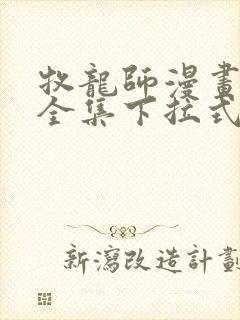 牧龍師漫畫
全集下拉式
新瀉改造計劃